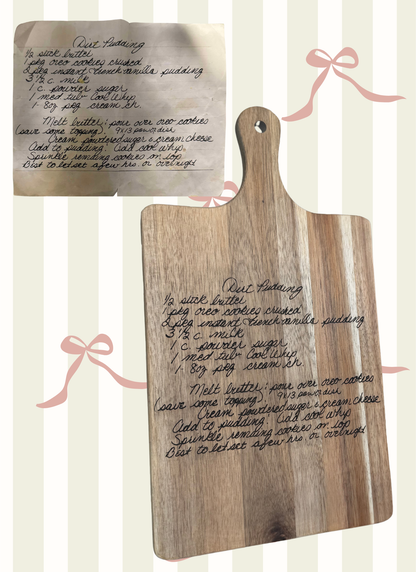 Dirt Pudding
1/2 stick butter
1 pkg oreo cookies crushed
2 pkg instant French vanilla pudding
3 1/2 c. milk
1 c. powder sugar
1 med tub Cool Whip
1- 8oz pkg cream ch.
Melt butter; pour over oreo cookies
(save some topping). 9x13 pan or dish
Cream powdered sugar & cream cheese
Add to pudding. Add cool whip.
Sprinkle remaing cookies on top
Best to let set a few hrs. or overnight
Dirt Pudding
1/2 stick butter
1 pkg oreo cookies crushed
2 pkg instant French vanilla pudding
3 1/2 c. milk
1 c. powder sugar
1 med tub Cool Whip
1- 8oz pkg cream ch.
Melt butter; pour over oreo cookies
(save some topping). 9x13 pan or dish
Cream powdered sugar & cream cheese
Add to pudding. Add cool whip
Sprinkle remaing cookies on top
Best to let set a few hrs. or overnight